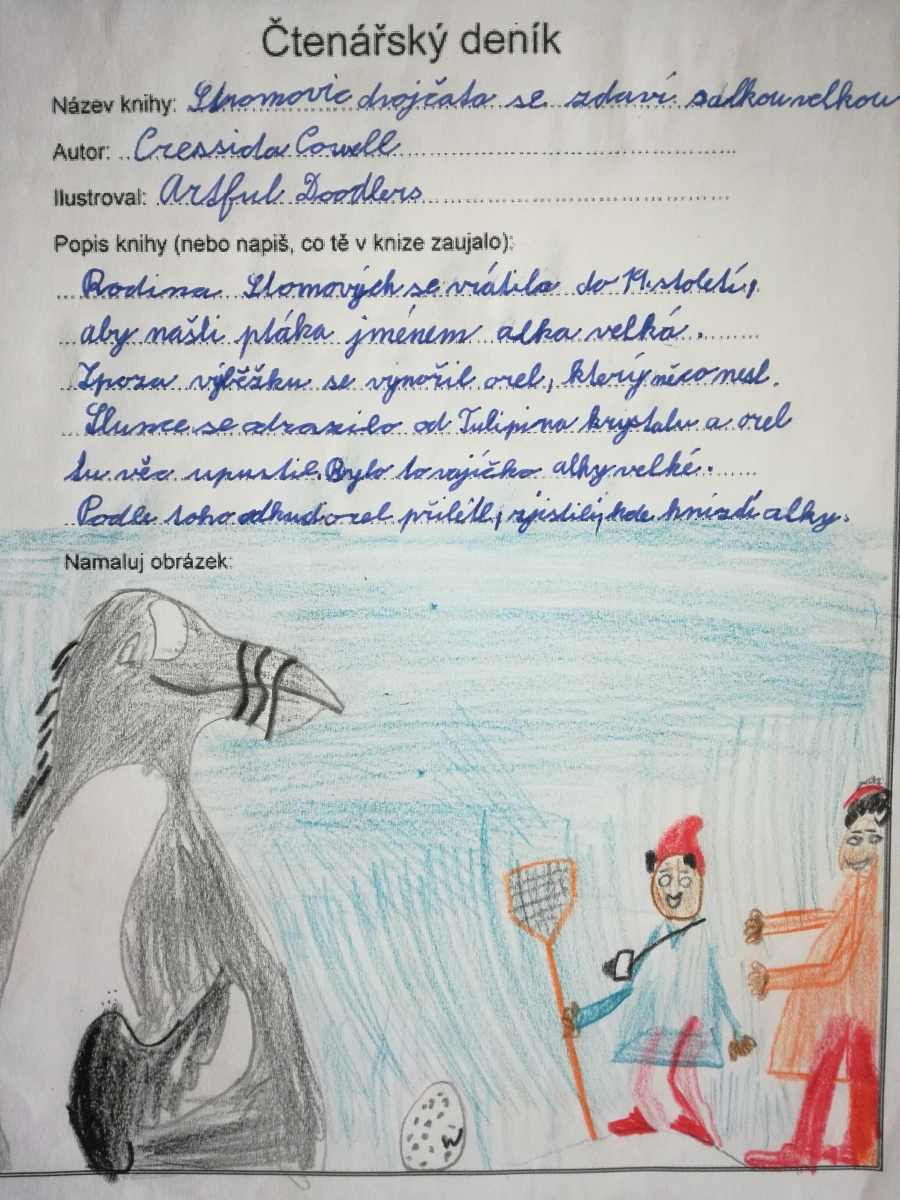 Čtenářský deník
Název knihy: Stromovic dvojčata se zdaví salkou velkou
Autor: Cressida Cowell
Ilustroval: Artful Doodlers
Popis knihy (nebo napiš, co tě v knize zaujalo):
Rodina Stomových se vrátila do 19. století,
aby našli ptáka jménem alka velká.
Zpoza výběžku se vynořil orel, který něco nesl.
Slunce se odrazilo od Tulipina krystalu a orel
tu věc upustil. Bylo to vajíčko alky velké.
Podle toho odkud orel přilétl, zjistili, kde hnízdí alky.
Namaluj obrázek: